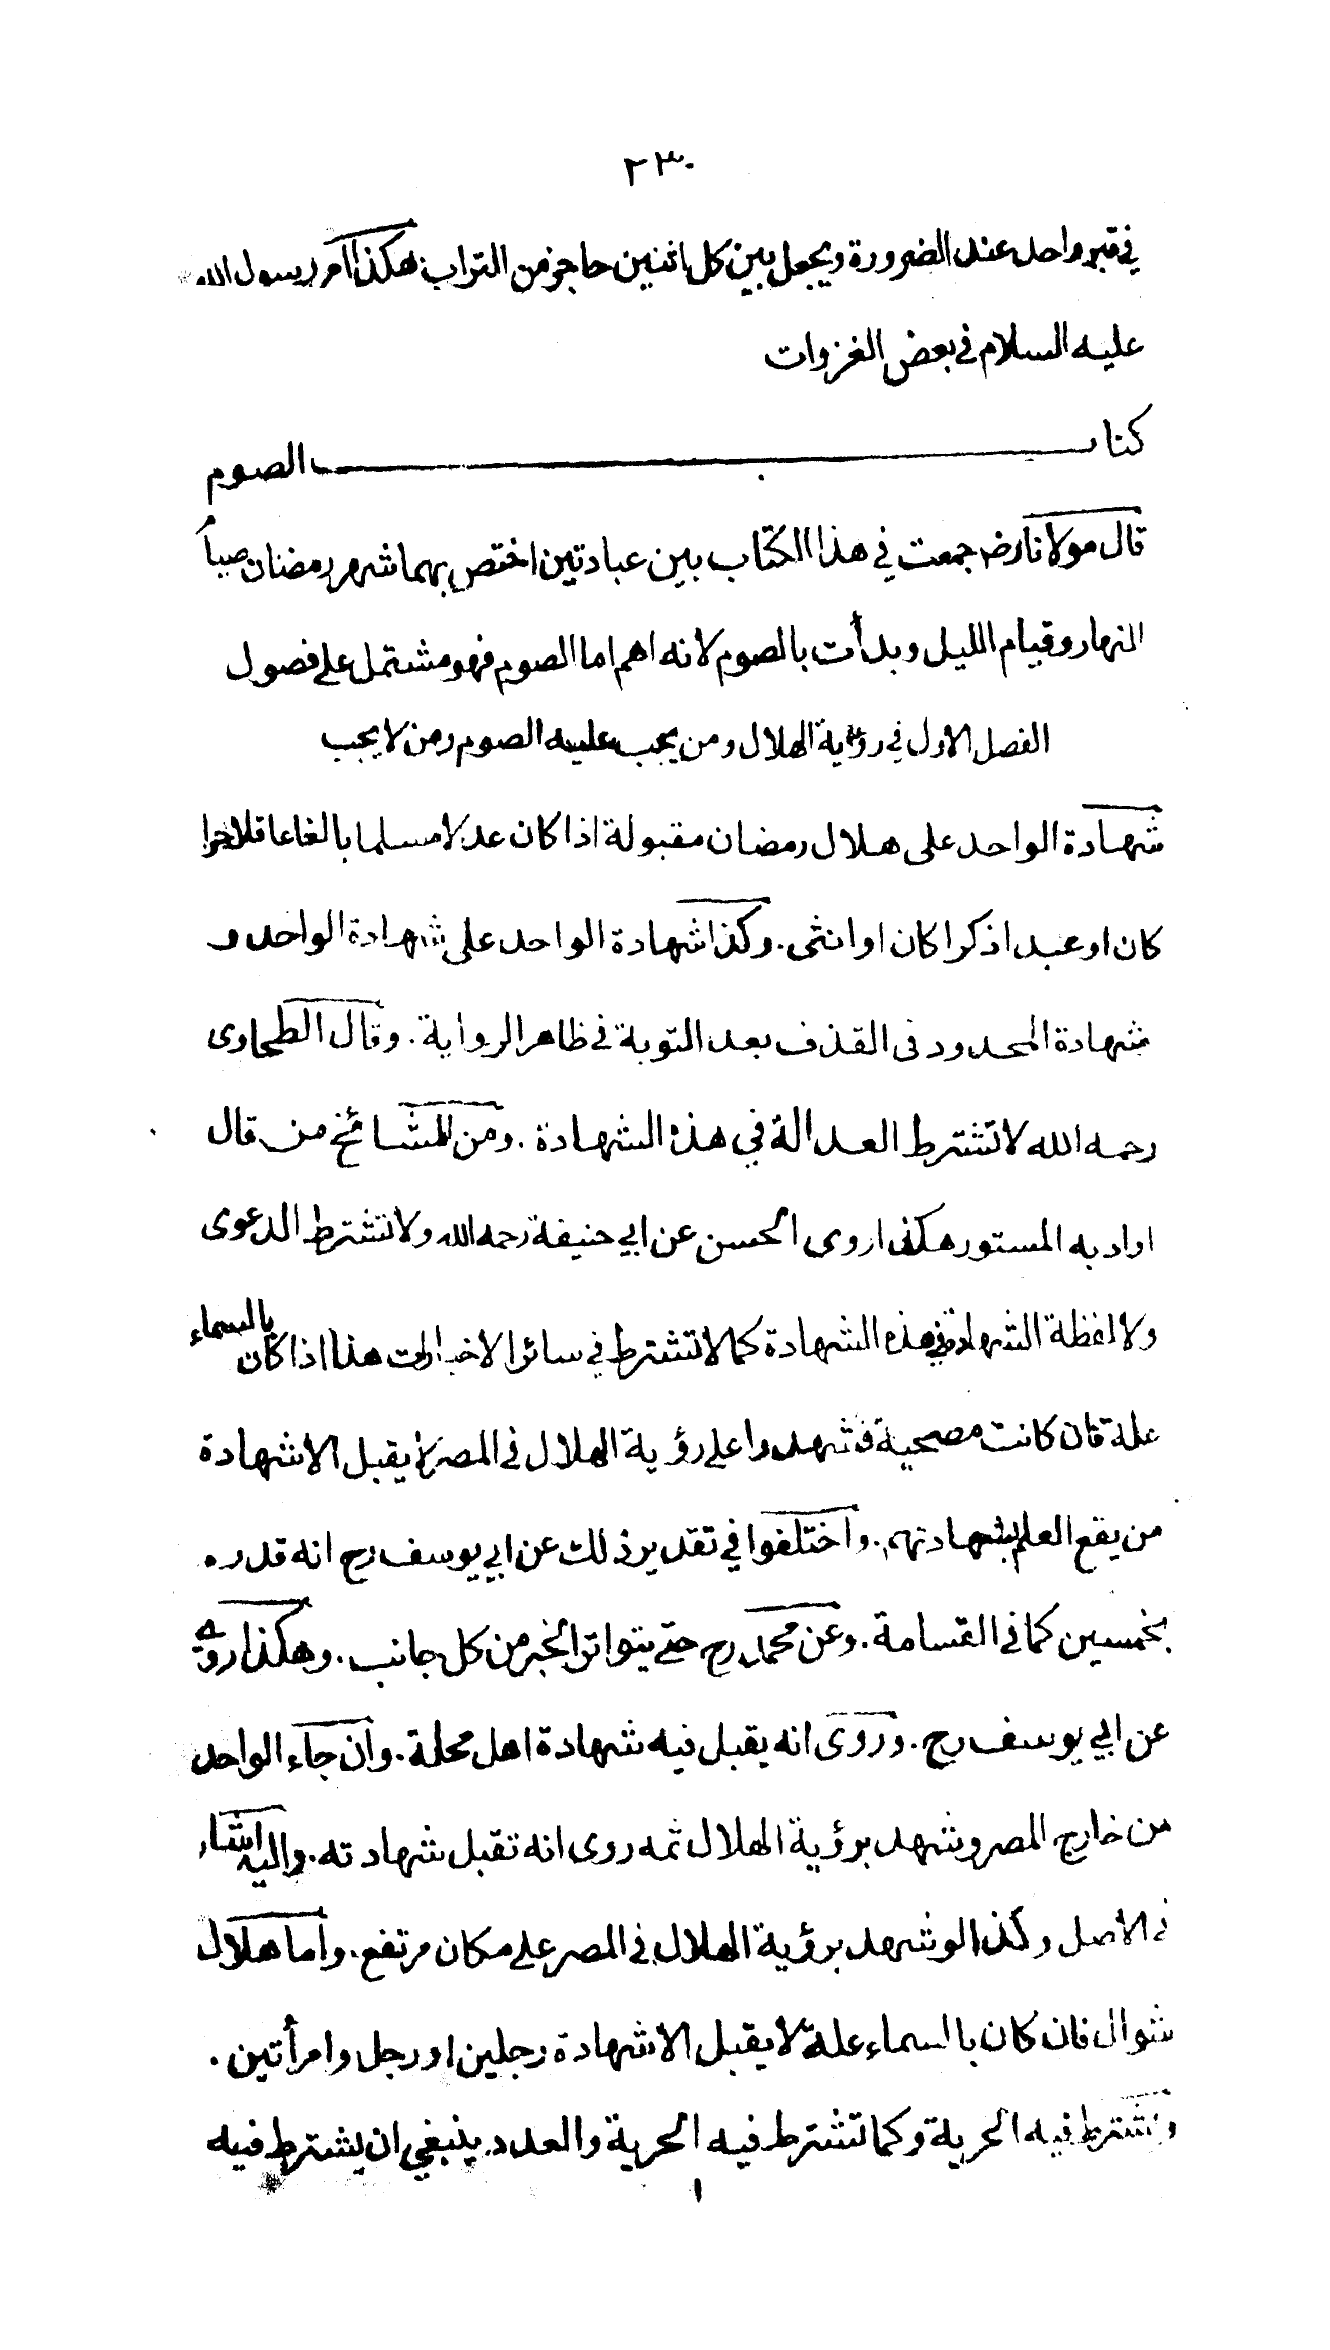 ٢٣٠
في قبر واحد عند الضرورة ويجعل بين كل اثنين حاجز من التراب هكذا امر رسول الله
عليه السلام في بعض الغزوات
كتاب الصوم
قال مولانا رض جمعت في هذا الكتاب بين عبادتين اختص بهما شهر رمضان صيا
النهار وقيام الليل وبدأت بالصوم لانه اهم اما الصوم فهو مشتمل على فصول
الفصل الاول في رؤية الهلال ومن يجب عليه الصوم ومن لا يجب
شهادة الواحد على هلال رمضان مقبولة اذا كان عدلا مسلما بالغا عاقلا حرا
كان او عبدا ذكرا كان او انثى . وكذا شهادة الواحد على شهادة الواحد و
شهادة المحدود في القذف بعد التوبة في ظاهر الرواية . وقال الطحاوى
رحمه الله لا تشترط العدالة في هذه الشهادة . ومن المشائخ من قال
اراد به المستور هكذا روى الحسن عن ابي حنيفة رحمه الله ولا تشترط الدعوى
ولا لفظة الشهادة في هذه الشهادة كما لا تشترط في سائر الاخبارات هذا اذا كان بالسماء
علة فان كانت مصحية فشهدوا على رؤية الهلال في المصر لا يقبل الا شهادة
من يقع العلم بشهادتهم . واختلفوا في تقدير ذلك عن ابي يوسف رح انه قدره
بخمسين كما في القسامة . وعن محمد رح حتى يتواتر الخبر من كل جانب . وهكذا روي
عن ابي يوسف رح . وروى انه يقبل فيه شهادة اهل محلة . وان جاء الواحد
من خارج المصر وشهد برؤية الهلال ثمه روى انه تقبل شهادته . واليه اشار
في الاصل وكذا لو شهد برؤية الهلال في المصر على مكان مرتفع . واما هلال
شوال فان كان بالسماء علة لا يقبل الا شهادة رجلين او رجل وامرأتين .
وتشترط فيه الحرية وكما تشترط فيه الحرية والعدد ينبغي ان يشترط فيه